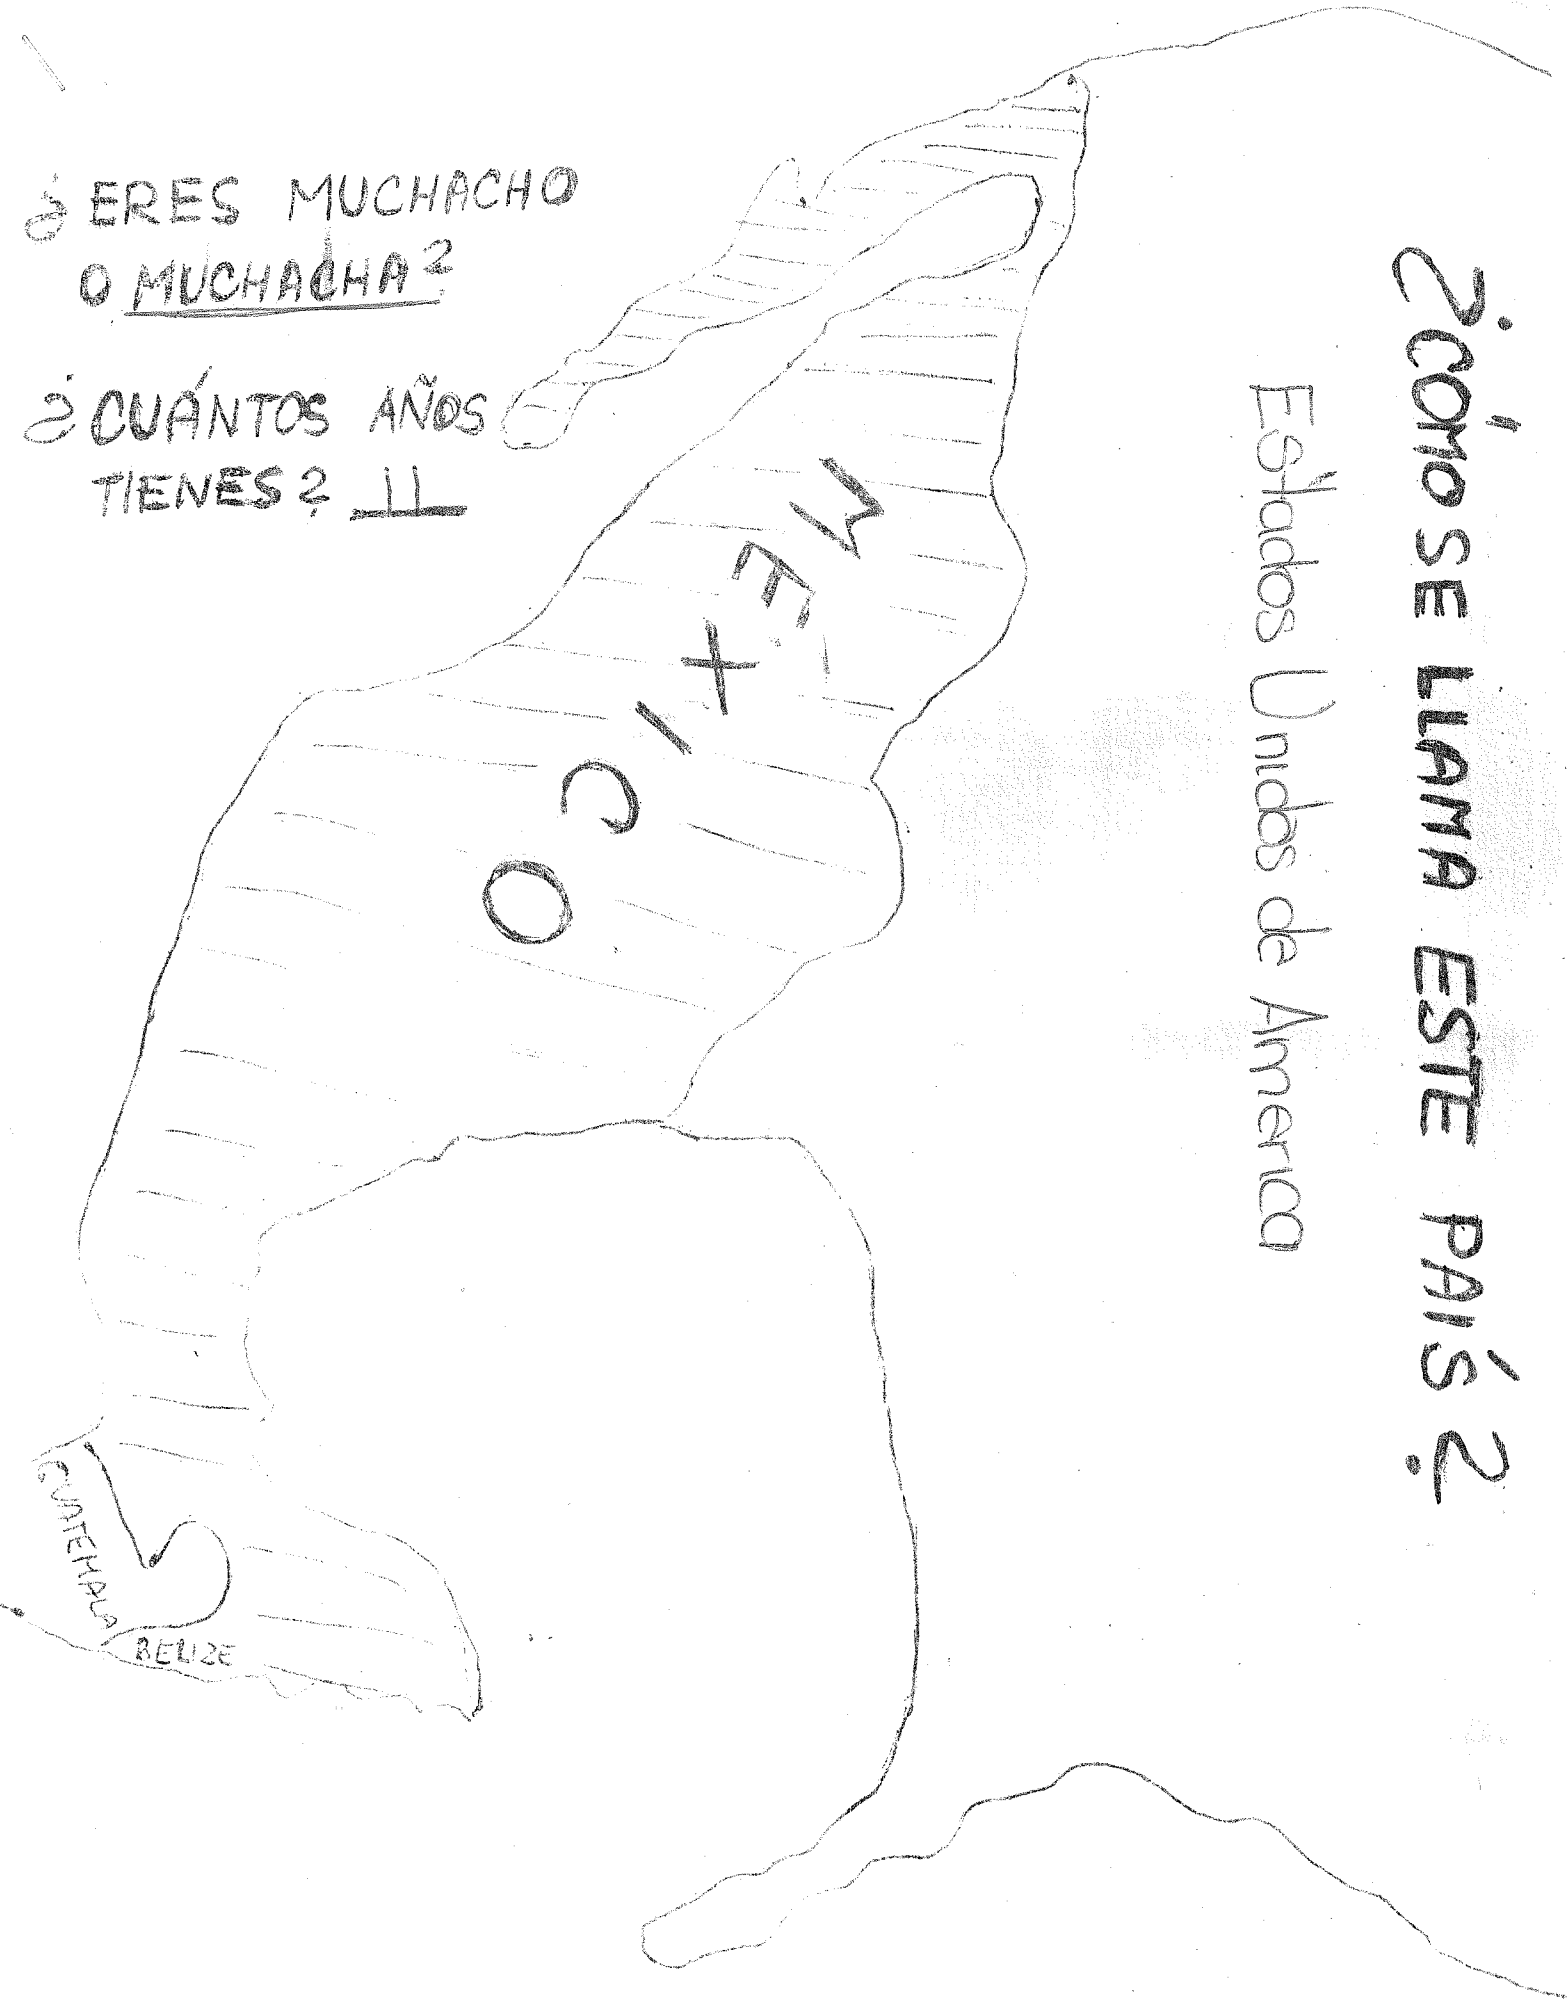 ¿CÓMO SE LLAMA ESTE PAÍS?
Estados Unidos de America
MEXICO
¿ERES MUCHACHO
O MUCHACHA?
¿CUÁNTOS AÑOS
TIENES? 11
GUATEMALA
BELIZE